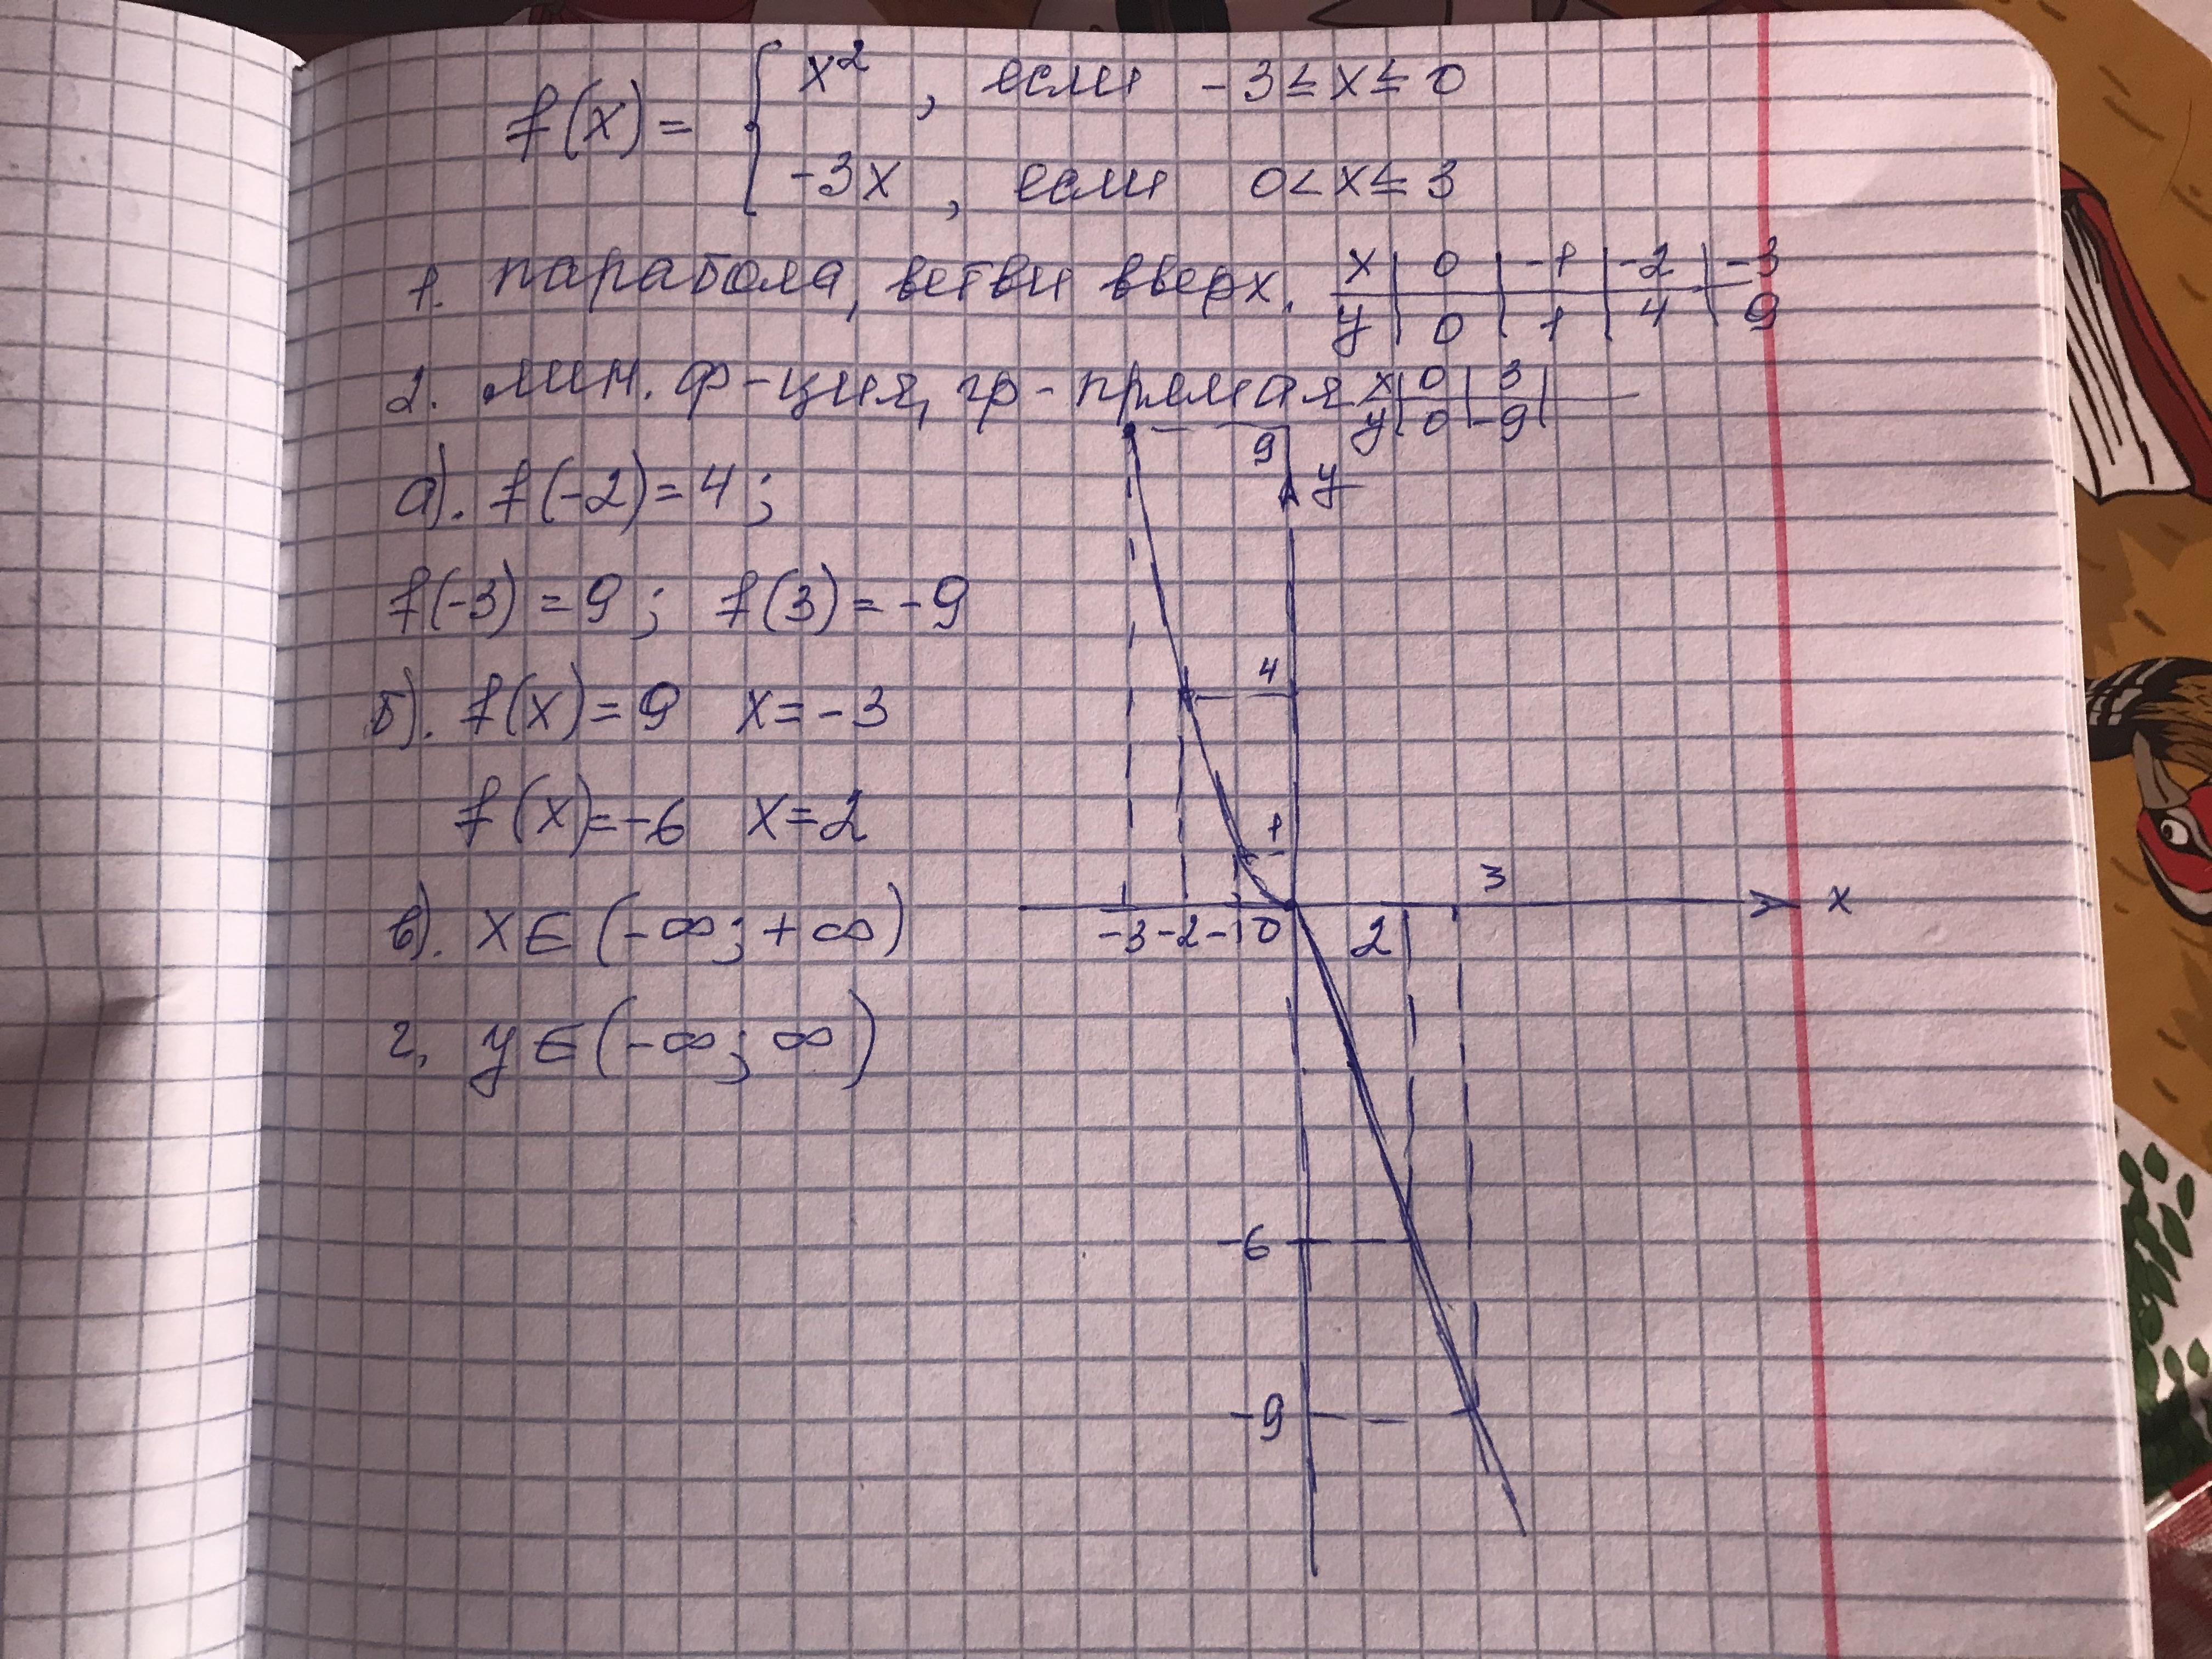 f(x) = { x², если -3 ≤ x ≤ 0
-3x, если 0 < x ≤ 3
1. парабола, ветви вверх. x | 0 | -1 | -2 | -3
y | 0 | 1 | 4 | 9
2. лин. ф-ция, гр-прямая x | 0 | 3 |
y | 0 | -9 |
а). f(-2) = 4;
f(-3) = 9; f(3) = -9
б). f(x) = 9 x = -3
f(x) = -6 x = 2
в). x ∈ (-∞; +∞)
г. y ∈ (-∞; ∞)
9
y
4
1
3
x
-3 -2 -1 0 2
-6
-9